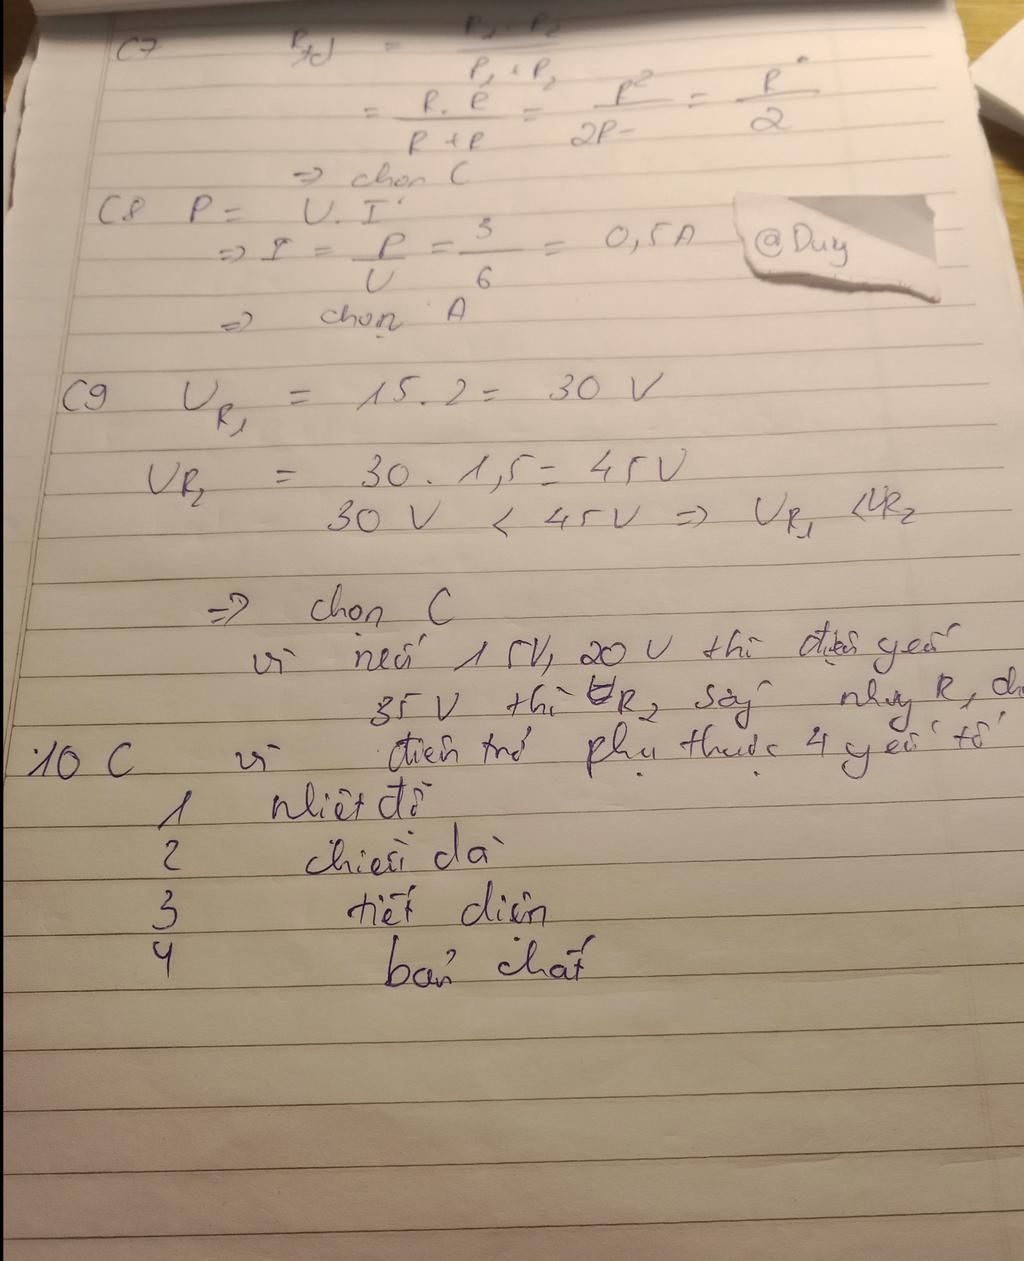 C7 Rtđ = R1 . R2 / R1 + R2
= R . R / R + R = R² / 2R = R / 2
=> chọn C
C8 P = U. I
=> I = P / U = 3 / 6 = 0,5A
@Duy
=> chọn A
C9 UR1 = 15. 2 = 30 V
UR2 = 30. 1,5 = 45V
30 V < 45V => UR1 < UR2
=> chọn C
vì nếu 15V, 20V thì điện yếu
35V thì R2 R1
10 C vì điện trở phụ thuộc 4 yếu tố
1 nhiệt độ
2 chiều dà
3 tiết diện
4 bản chất